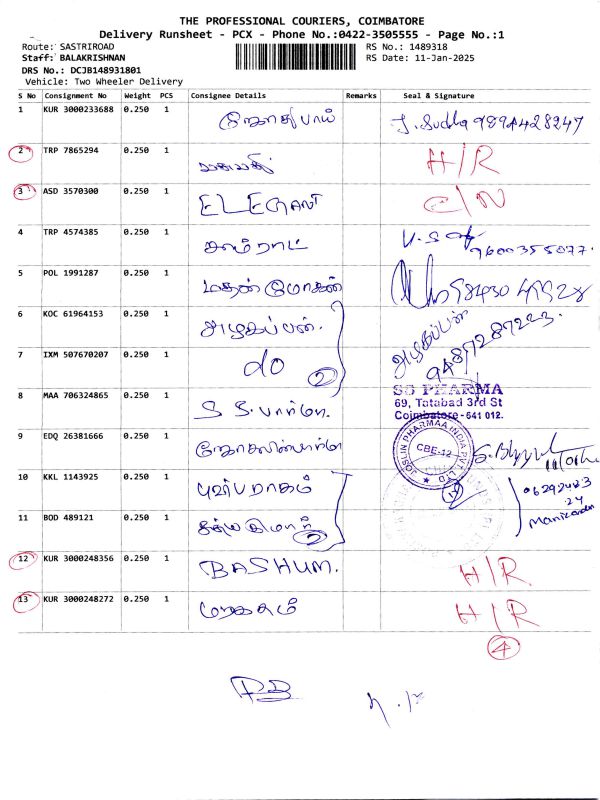 THE PROFESSIONAL COURIERS, COIMBATORE
Delivery Runsheet - PCX - Phone No.:0422-3505555 - Page No.:1
Route: SASTRIROAD RS No.: 1489318
Staff: BALAKRISHNAN RS Date: 11-Jan-2025
DRS No.: DCJB148931801
Vehicle: Two Wheeler Delivery
S No Consignment No Weight PCS Consignee Details Remarks Seal & Signature
1 KUR 3000233688 0.250 1 J. Sudha 9894428247
2 TRP 7865294 0.250 1 H/R
3 ASD 3570300 0.250 1 ELEGANT C/N
4 TRP 4574385 0.250 1 சாம்ராட் 9600355077
5 POL 1991287 0.250 1 மதன்மோகன்
6 KOC 61964153 0.250 1 அழகப்பன். அழகப்பன்
7 IXM 507670207 0.250 1 do 2 9487289223
8 MAA 706324865 0.250 1 S S. பார்மா. SS PHARMA
69, Tatabad 3rd St
Coimbatore-641 012.
9 EDQ 26381666 0.250 1 JOSLIN PHARMAA INDIA PVT. LTD
CBE-12
10 KKL 1143925 0.250 1
11 BOD 489121 0.250 1 2 Manikandan
12 KUR 3000248356 0.250 1 BASHUM. H/R.
13 KUR 3000248272 0.250 1 H/R
4